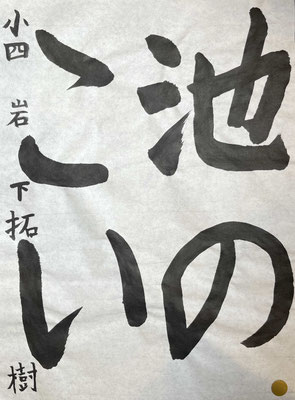 池の
こい
小四 岩下拓樹